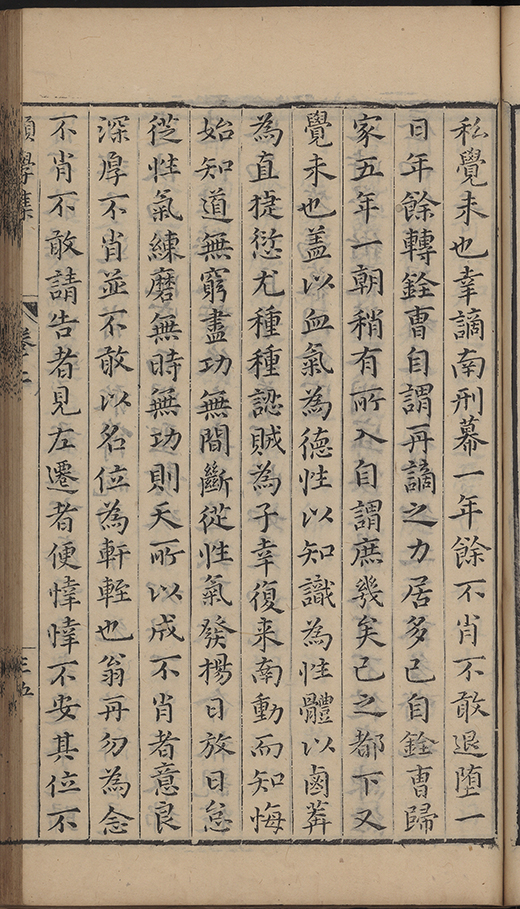 私覺未也幸謫南刑幕一年餘不肖不敢退堕一
日年餘轉銓曹自謂再謫之力居多已自銓曹歸
家五年一朝稍有所入自謂庶幾矣已之都下又
覺未也盖以血氣為德性以知識為性體以鹵莾
為直捷愆尤種種認賊為子幸復来南動而知悔
始知道無窮盡功無間斷從性氣發楊日放日怠
從性氣練磨無時無功則天所以成不肖者意良
深厚不肖並不敢以名位為軒輊也翁再勿為念
不肖不敢請告者見左遷者便悻悻不安其位不
願學集
卷二